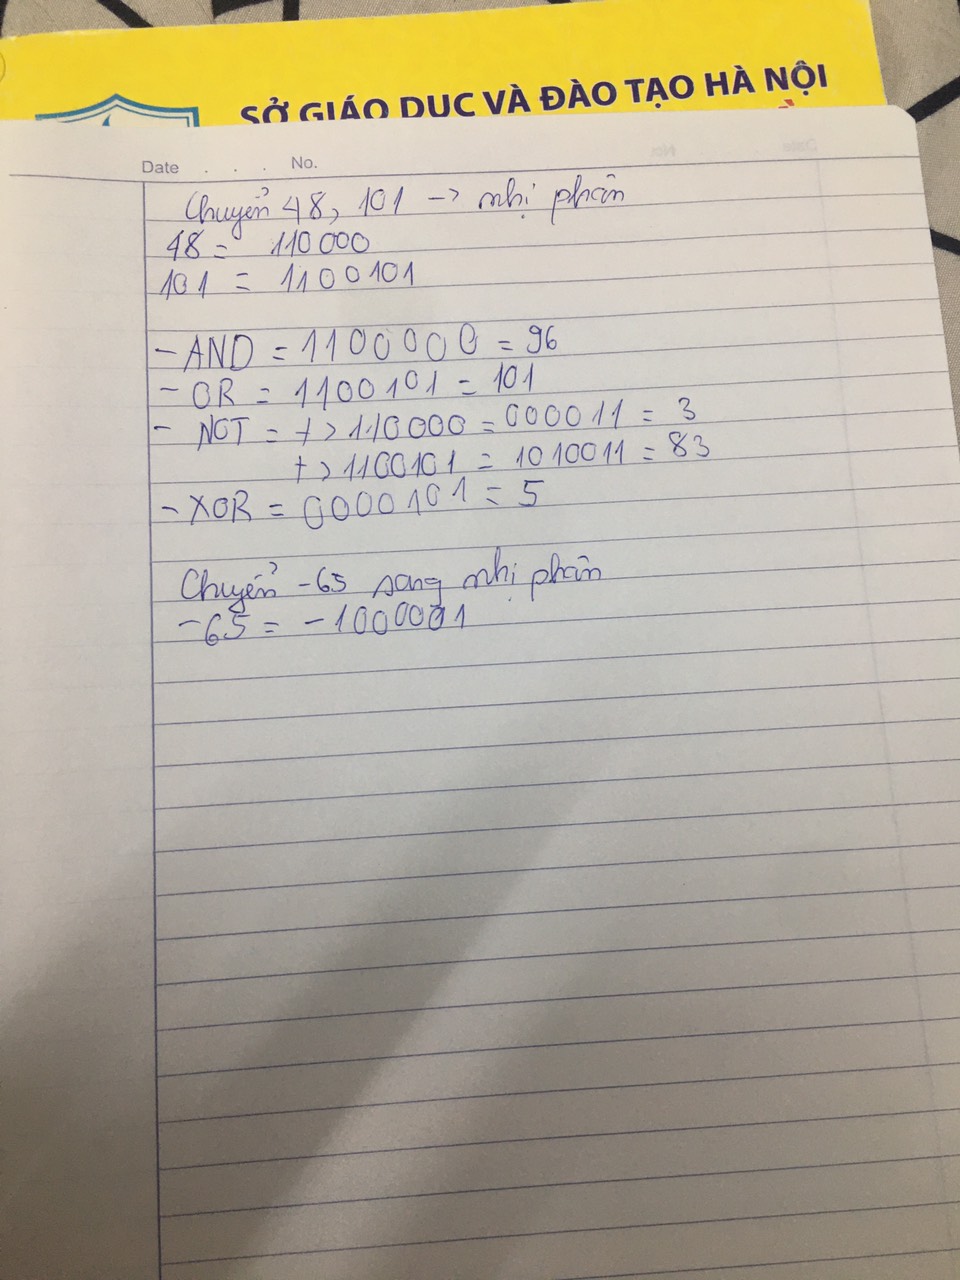 SỞ GIÁO DỤC VÀ ĐÀO TẠO HÀ NỘI
Date . . . No.
Chuyển 48, 101 -> nhị phân
48 = 110000
101 = 1100101
- AND = 1100000 = 96
- OR = 1100101 = 101
- NOT = +> 110000 = 000011 = 3
+> 1100101 = 1010011 = 83
- XOR = 0000101 = 5
Chuyển -65 sang nhị phân
-65 = -1000001